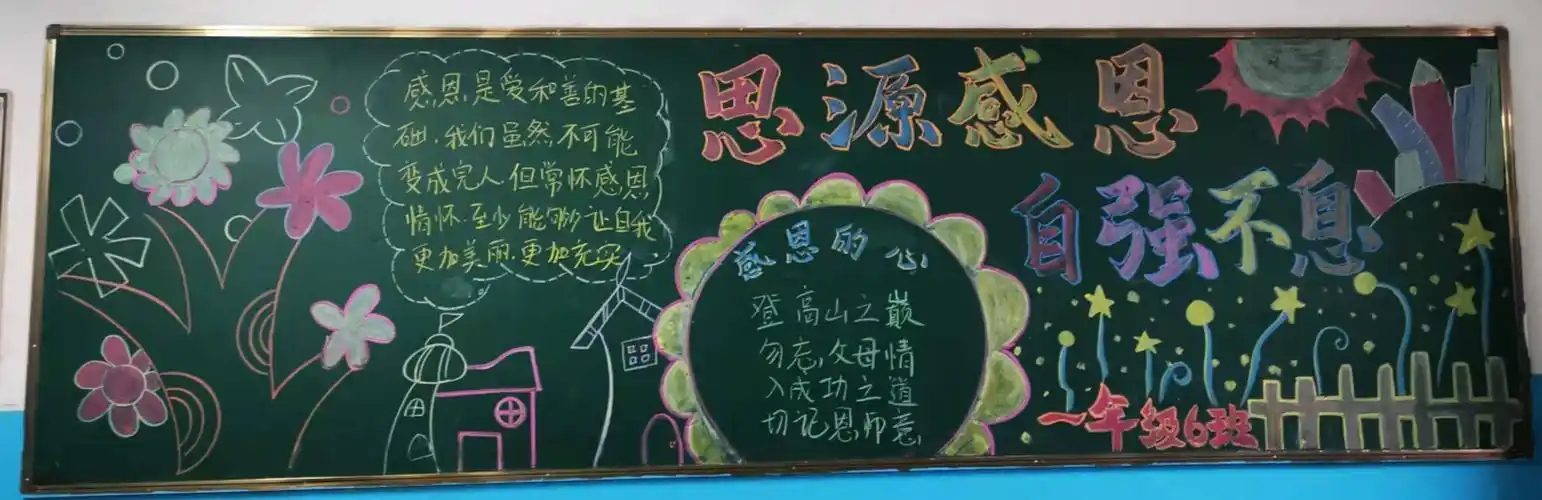 感恩是爱和善的基
础.我们虽然不可能
变成完人.但常怀感恩
情怀.至少能够让自我
更加美丽.更加充实
思源感恩
自强不息
感恩的心
登高山之巅
勿忘父母情
入成功之道
切记恩师意
一年级6班